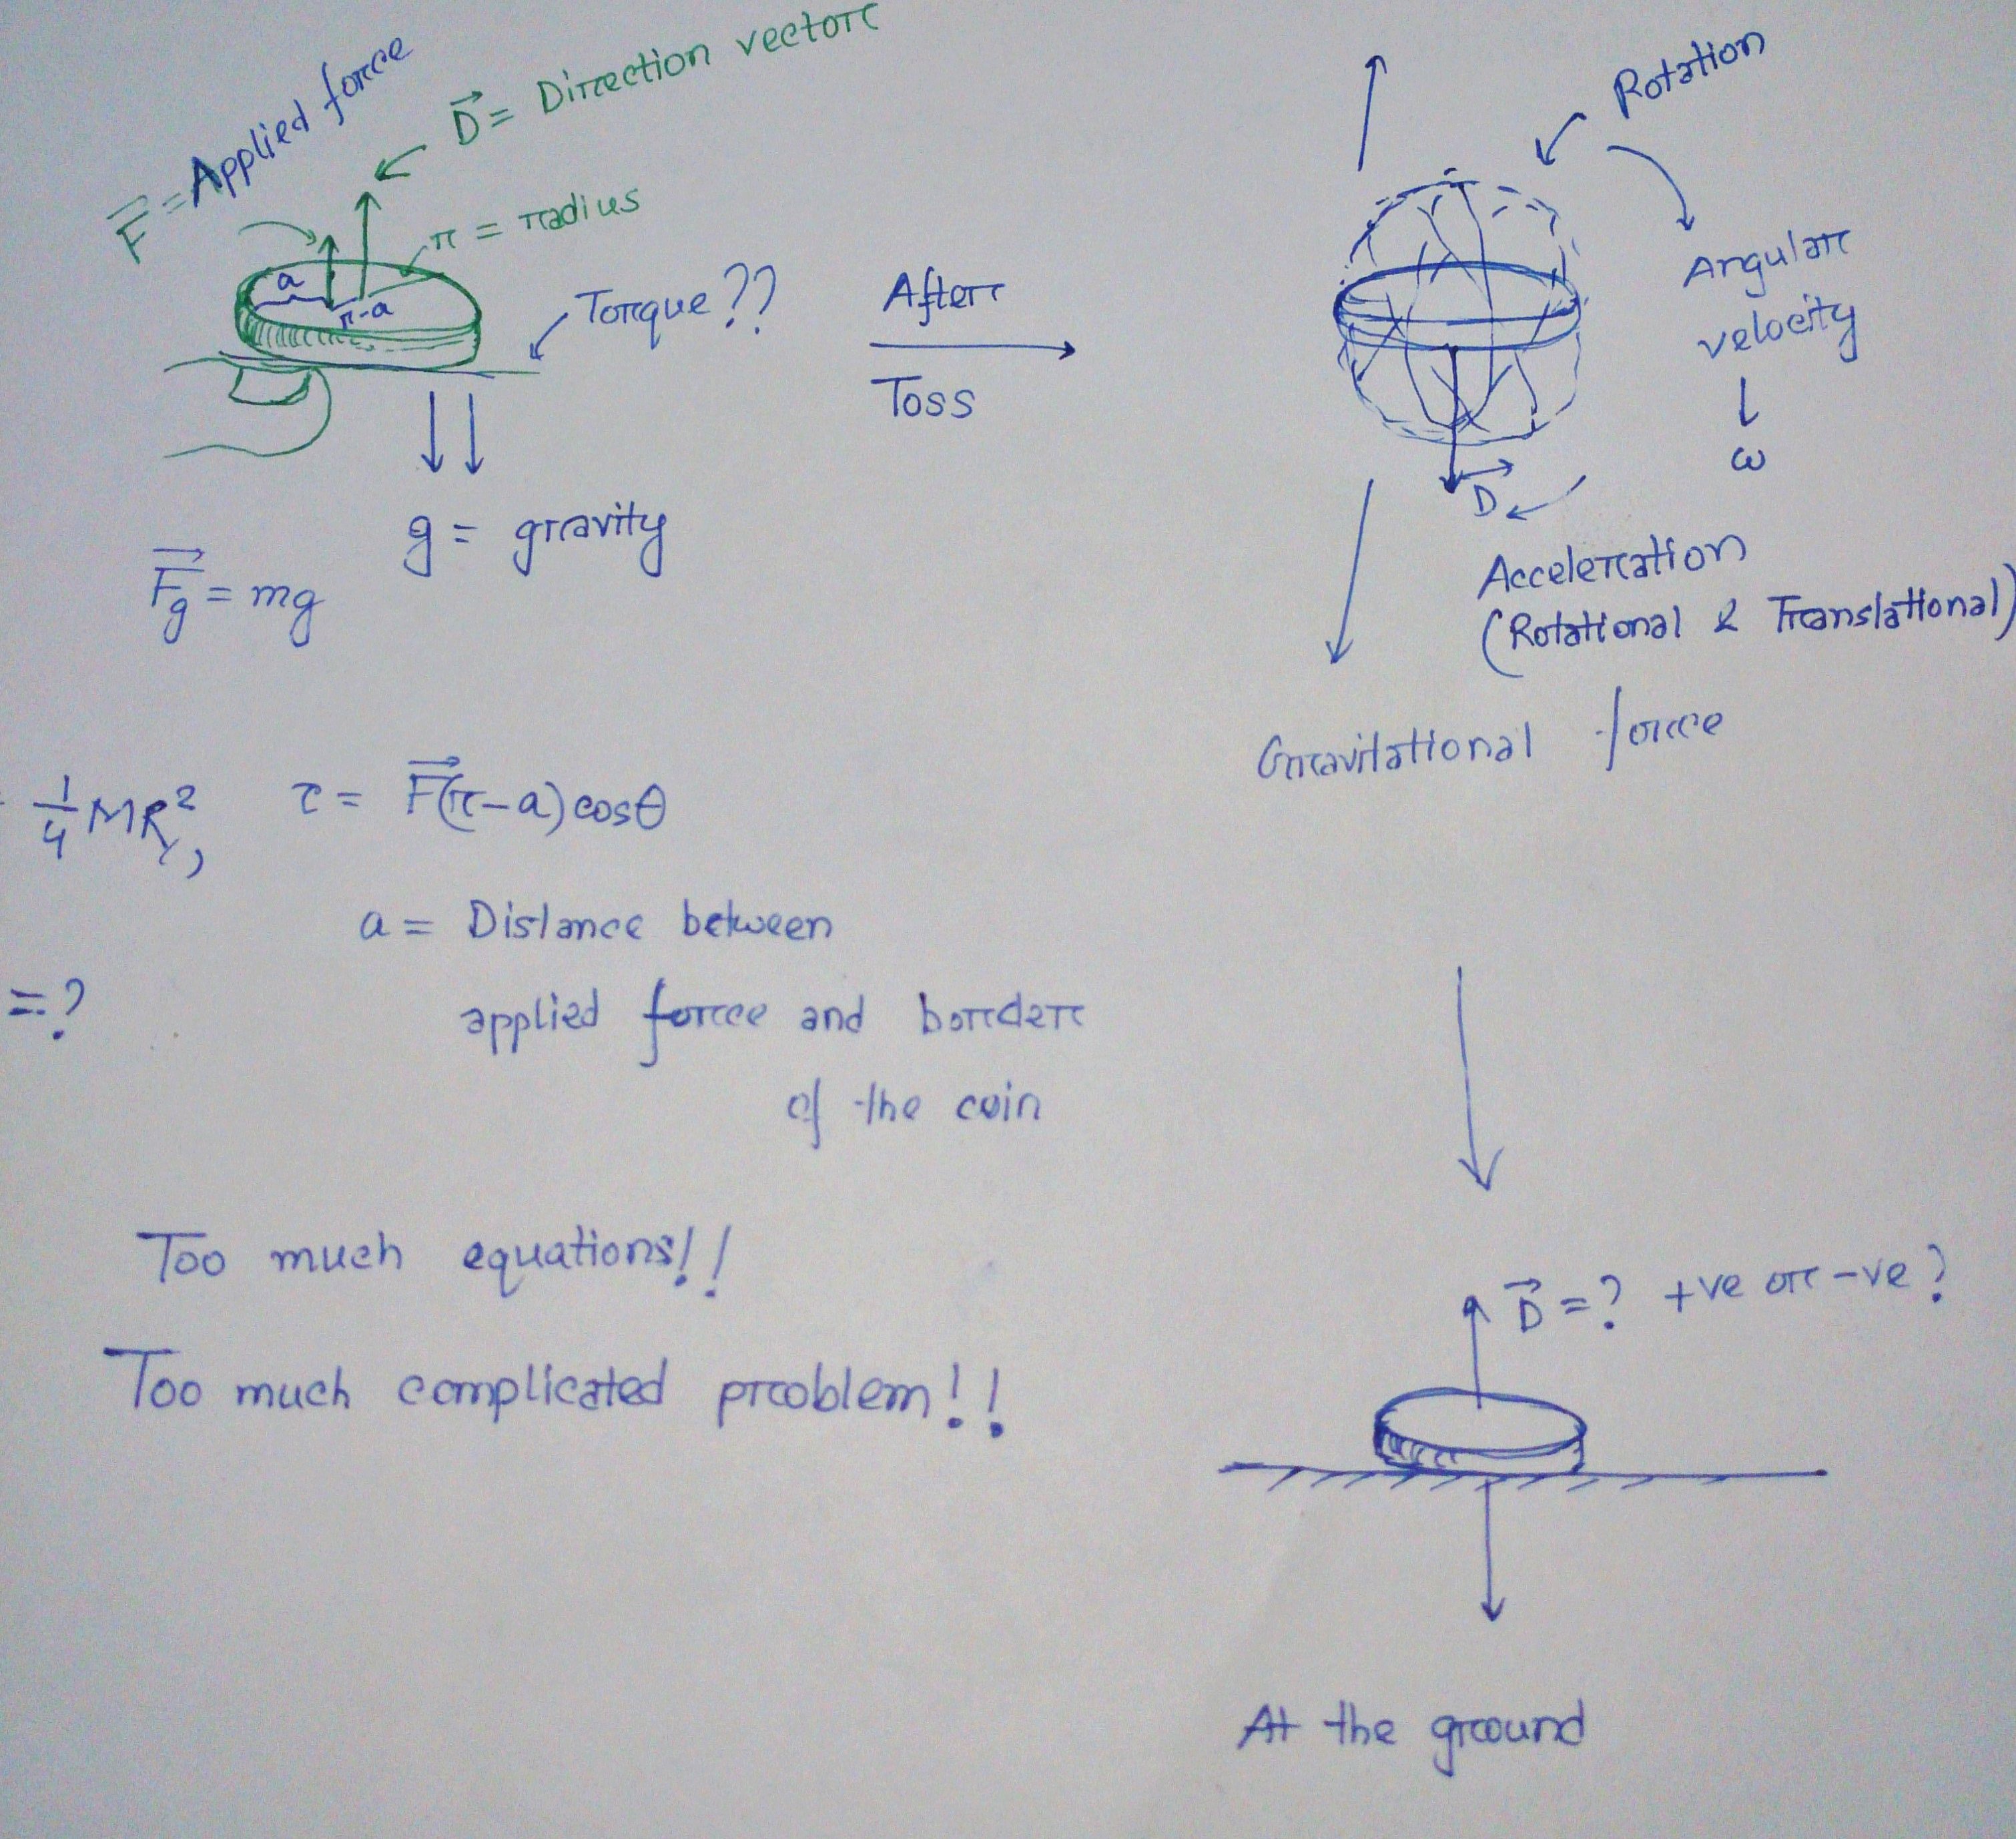 F⃗ = Applied force
D⃗ = Direction vector
r = radius
a
r-a
Torque??
g = gravity
F⃗g = mg
After
Toss
Rotation
Angular
velocity
ω
D⃗
Acceleration
(Rotational & Translational)
Gravitational force
1/4 MR², τ = F⃗(r-a)cosθ
a = Distance between
applied force and border
of the coin
=?
Too much equations!!
Too much complicated problem!!
D⃗ =? +ve or -ve?
At the ground